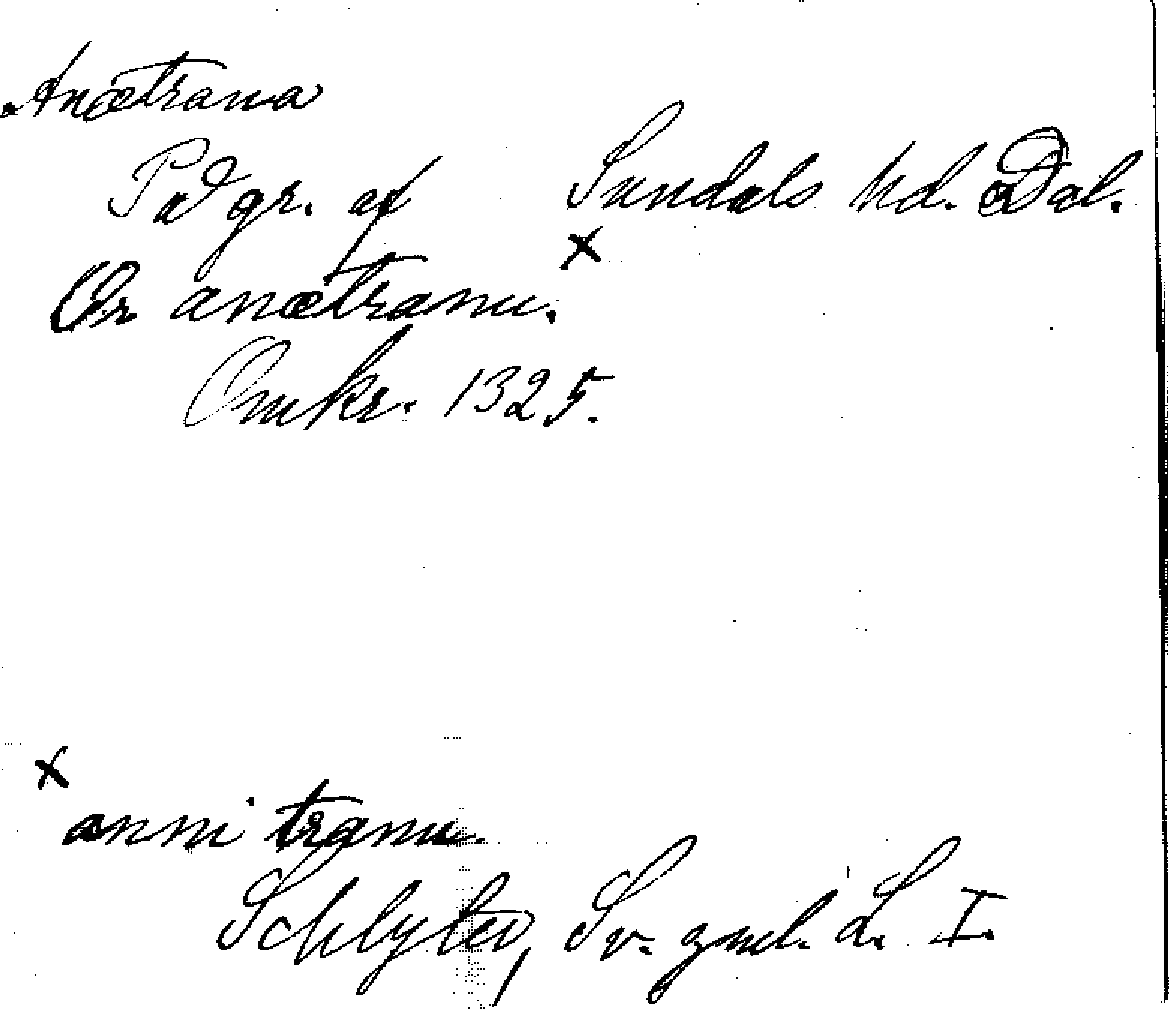 Anætrana
På gr. af Sundals hd. Dal.
×
Or anætranu.
Omkr. 1325.
×
anni tranu
Schlyter, Sv. gml. L. I.